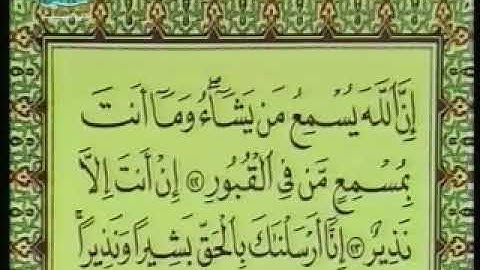 إِنَّ ٱللَّهَ يُسْمِعُ مَن يَشَآءُۖ وَمَآ أَنتَ
بِمُسْمِعٍ مَّن فِى ٱلْقُبُورِ ٢٢ إِنْ أَنتَ إِلَّا
نَذِيرٌ ٢٣ إِنَّآ أَرْسَلْنَٰكَ بِٱلْحَقِّ بَشِيرًا وَنَذِيرًاۚ